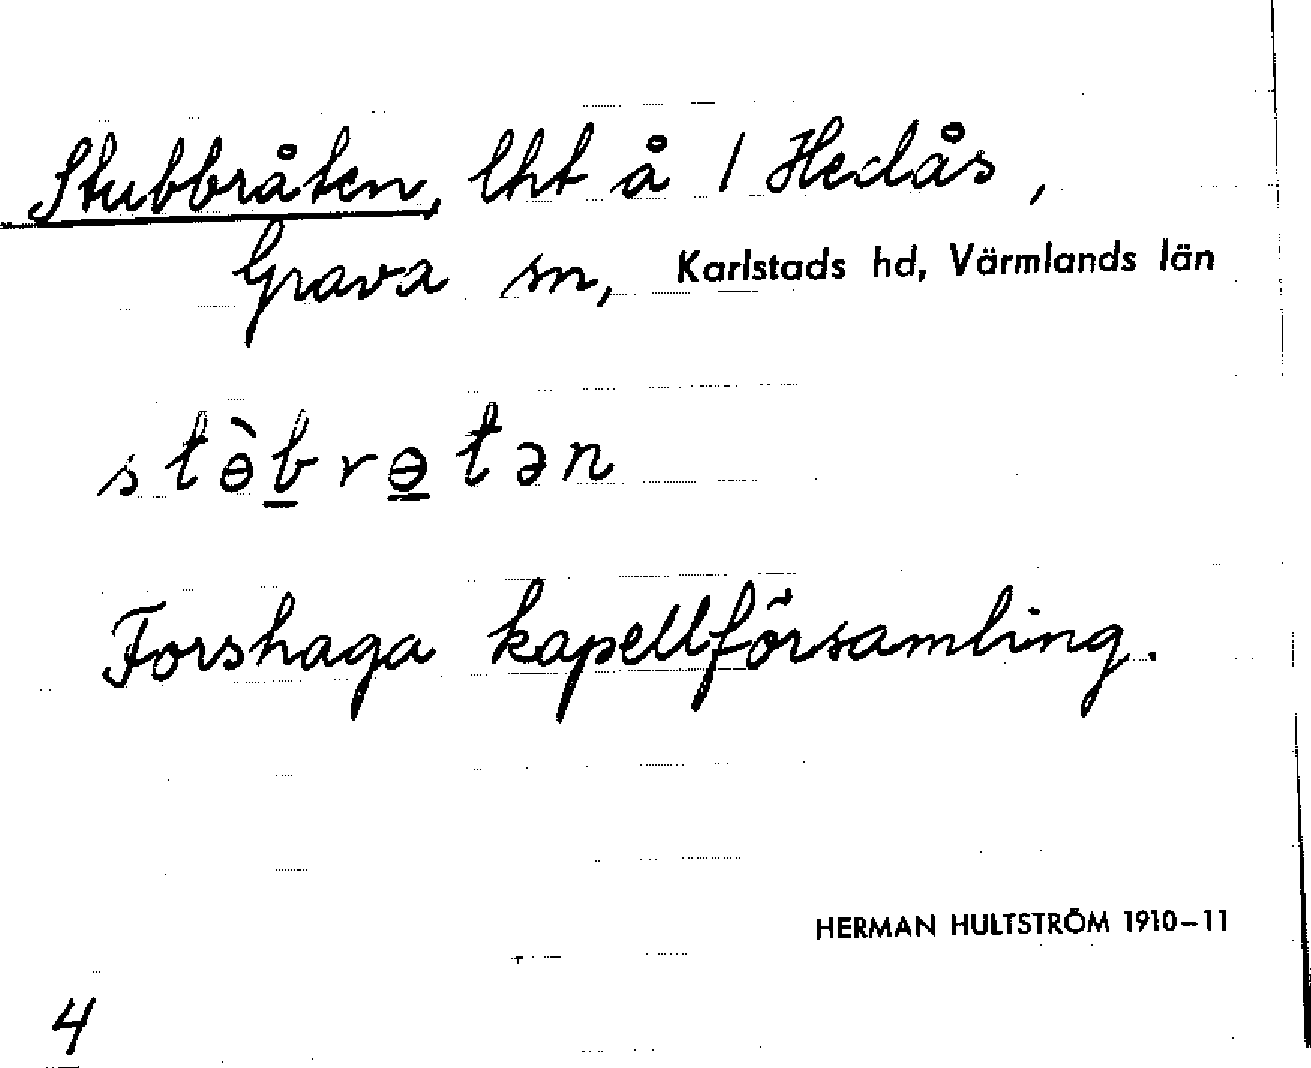 Stubbråten, lht å 1 Hedås,
Grava sn, Karlstads hd, Värmlands län
stɵ̀b̲rɵ̲tən
Forshaga kapellförsamling.
HERMAN HULTSTRÖM 1910–11
4